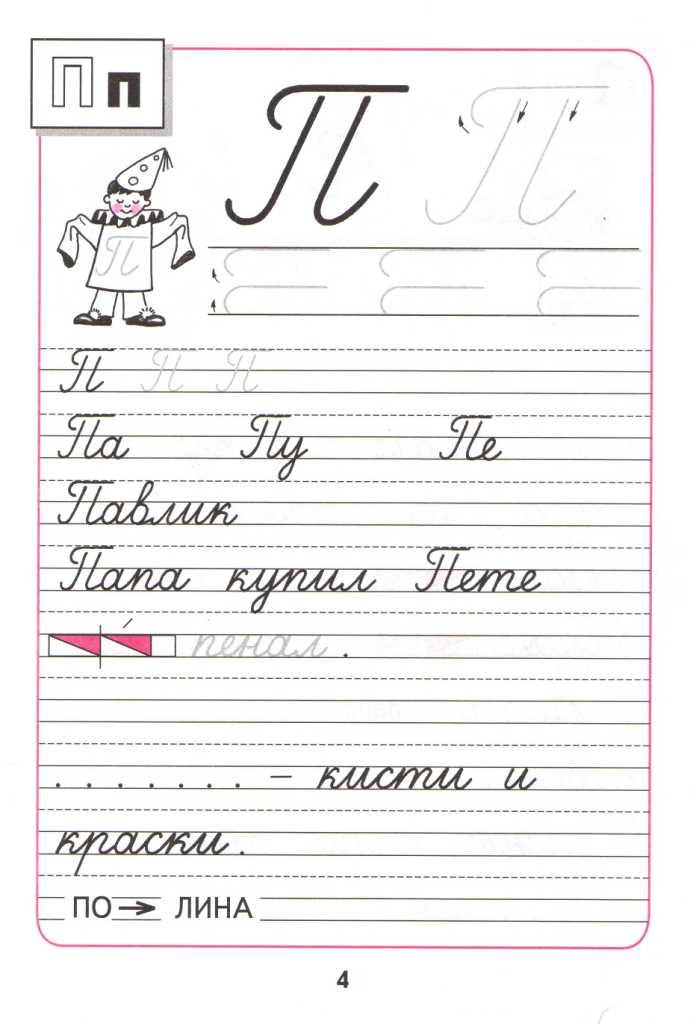 П п
П П
П
П П П
Па Пу Пе
Павлик
Папа купил Пете
пенал .
. . . . . . . – кисти и
краски.
ПО → ЛИНА
4